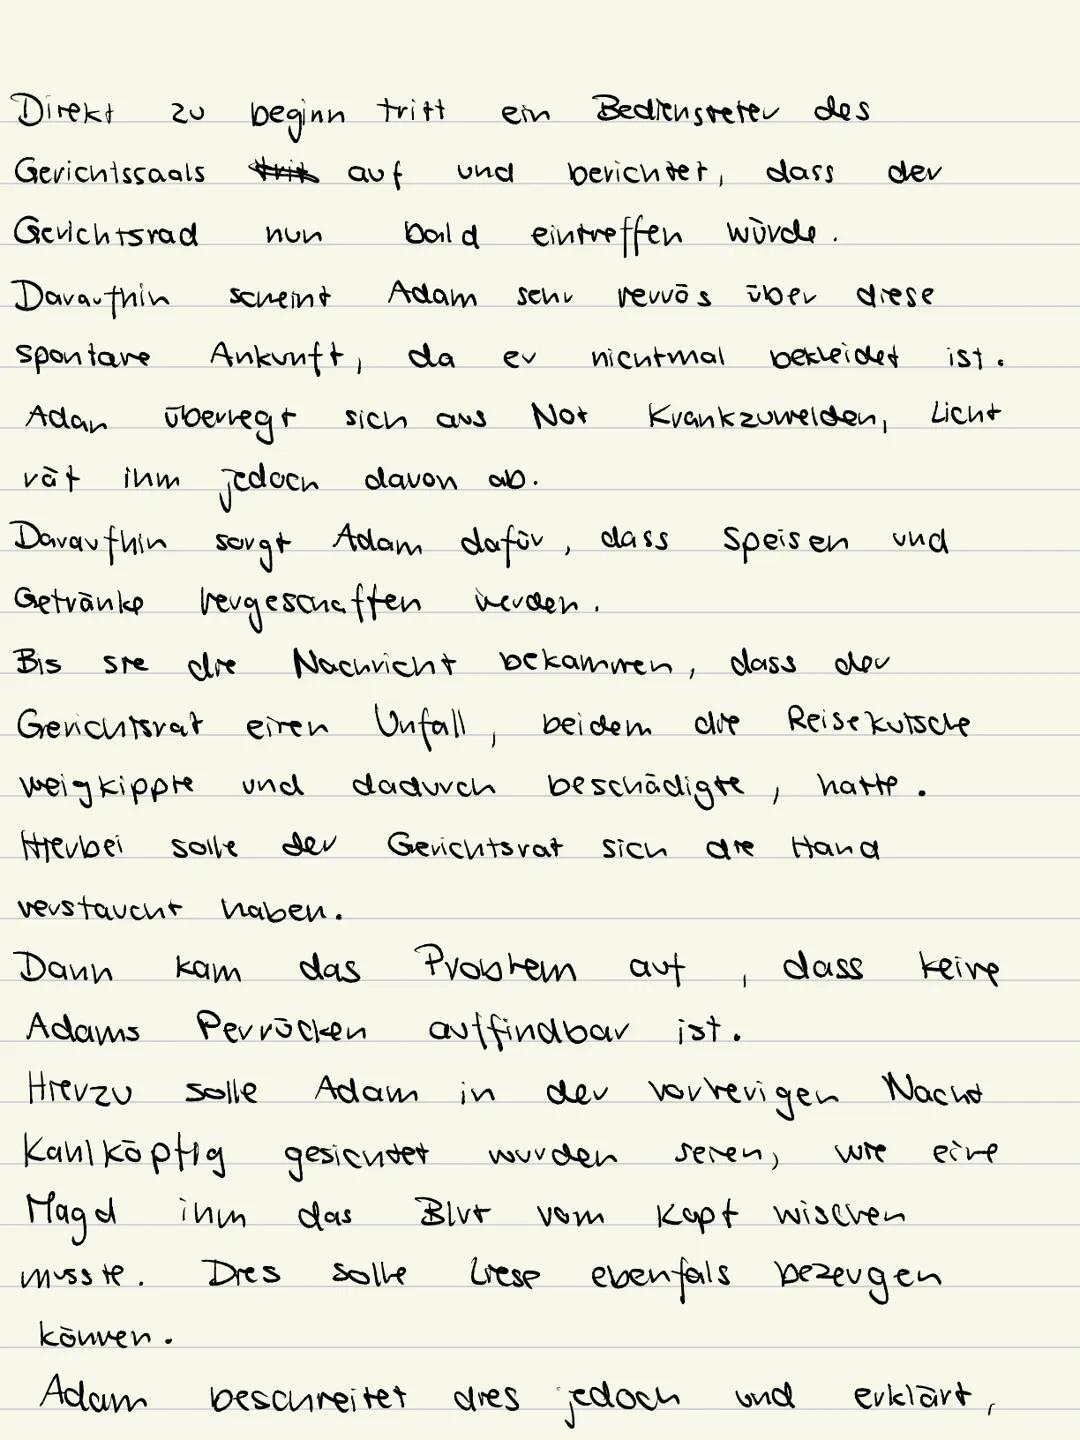 Direkt zu beginn tritt ein Bediensteter des
Gerichtssaals auf und berichtet, dass der
Gerichtsrad nun bald eintreffen würde.
Daraufhin scheint Adam sehr nervös über diese
spontane Ankunft, da er nichtmal bekleidet ist.
Adam überlegt sich aus Not Krankzumelden, Licht
rät ihm jedoch davon ab.
Daraufhin sorgt Adam dafür, dass Speisen und
Getränke hergeschaffen werden.
Bis sie die Nachricht bekammen, dass der
Gerichtsrat einen Unfall, beidem die Reisekutsche
wegkippte und dadurch beschädigte, hatte.
Hierbei solle der Gerichtsrat sich die Hand
verstaucht haben.
Dann kam das Problem auf, dass keine
Adams Perrücken auffindbar ist.
Hierzu solle Adam in der vorherigen Nacht
Kahlköpfig gesichtet wurden seien, wie eine
Magd ihm das Blut vom Kopf wischen
musste. Dies solle Liese ebenfals bezeugen
können.
Adam beschreitet dies jedoch und erklärt,